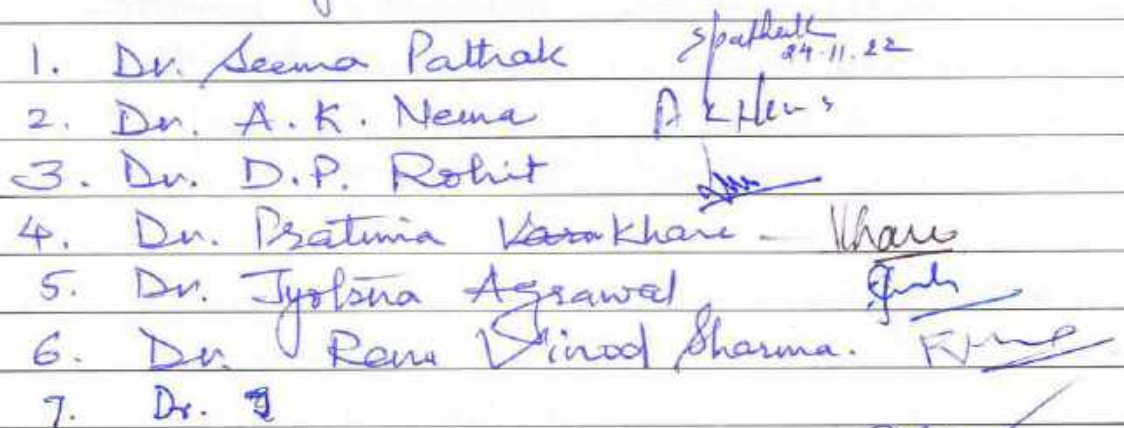 1. Dr. Seema Pathak Spathak 24.11.22
2. Dr. A. K. Nema A K Nema
3. Dr. D.P. Rohit
4. Dr. Pratima Khare - Khare
5. Dr. Jyotsna Agrawal
6. Dr. Renu Vinod Sharma.
7. Dr.